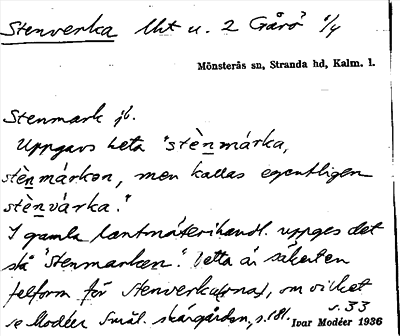 Stenverka Uht u. 2 Gårö 1/4
Mönsterås sn, Stranda hd, Kalm. l.
Stenmark jb.
Uppgavs heta "stènmárka,
stènmárkən, men kallas egentligen
stènvárka."
I gamla lantmäterihandl. uppges det
stå "Stenmarken". Detta är säkerligen
felform för Stenverka(rna), om vilket
se Modéer Smål. skärgården, s. 181.
s. 33
Ivar Modéer 1936